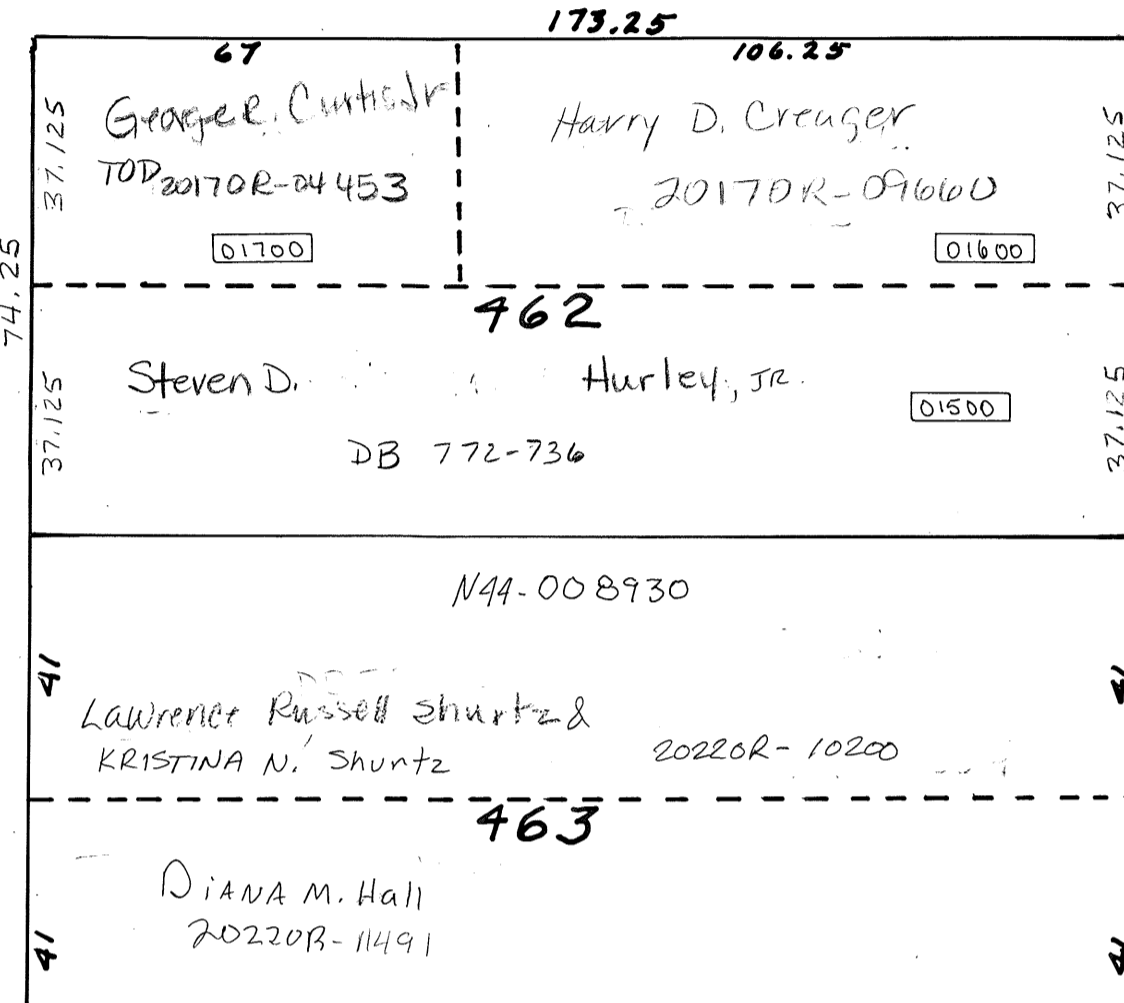 173.25
67
106.25
37.125
George R. Curtis Jr
TOD 2017OR-04453
01700
Harry D. Creager
2017OR-09660
01600
37.125
74.25
462
37.125
Steven D. Hurley, JR.
01500
DB 772-736
37.125
N44-008930
41
41
Lawrence Russell Shurtz &
KRISTINA N. Shurtz
2022OR-10200
463
DiANA M. Hall
2022OR-11491
41
41